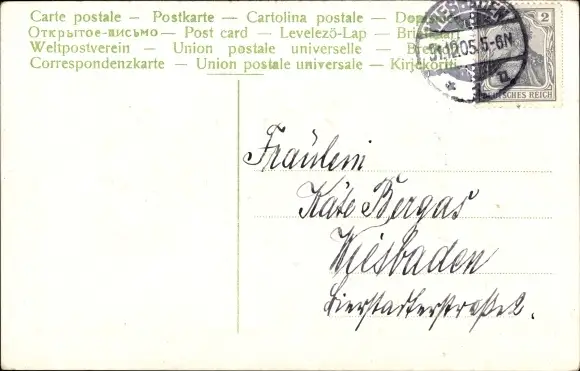 Carte postale – Postkarte – Cartolina postale –
Открытое-письмо – Post card – Levelező-Lap –
Weltpostverein – Union postale universelle –
Correspondenzkarte – Union postale universale – Kirjekortti
WIESBADEN
31.12.05.5-6N
2
DEUTSCHES REICH
Fräulein
Käte Bergas
Wiesbaden
Bierstadterstraße 2.